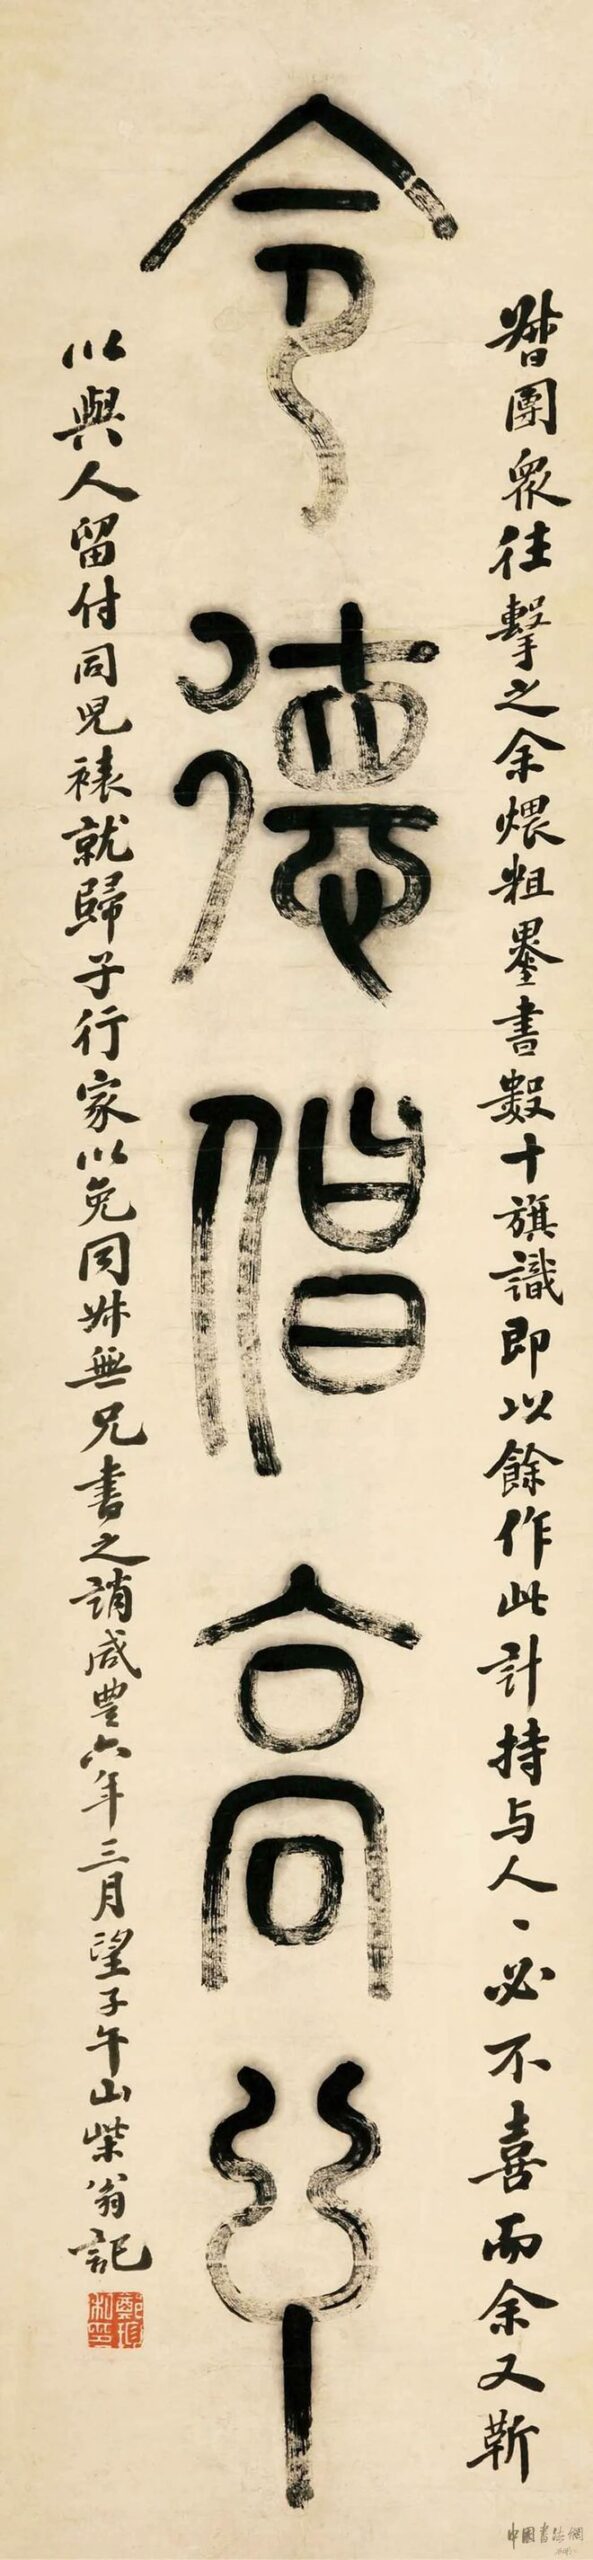 督團衆往擊之余煨粗墨書數十旗識即以餘作此計持与人〻必不喜而余又靳
令德倡高
以與人留付同兒裱就歸子行家以免同妹無兄書之誚咸豐六年三月望子午山柴翁記
鄭珍私印
中國書法網